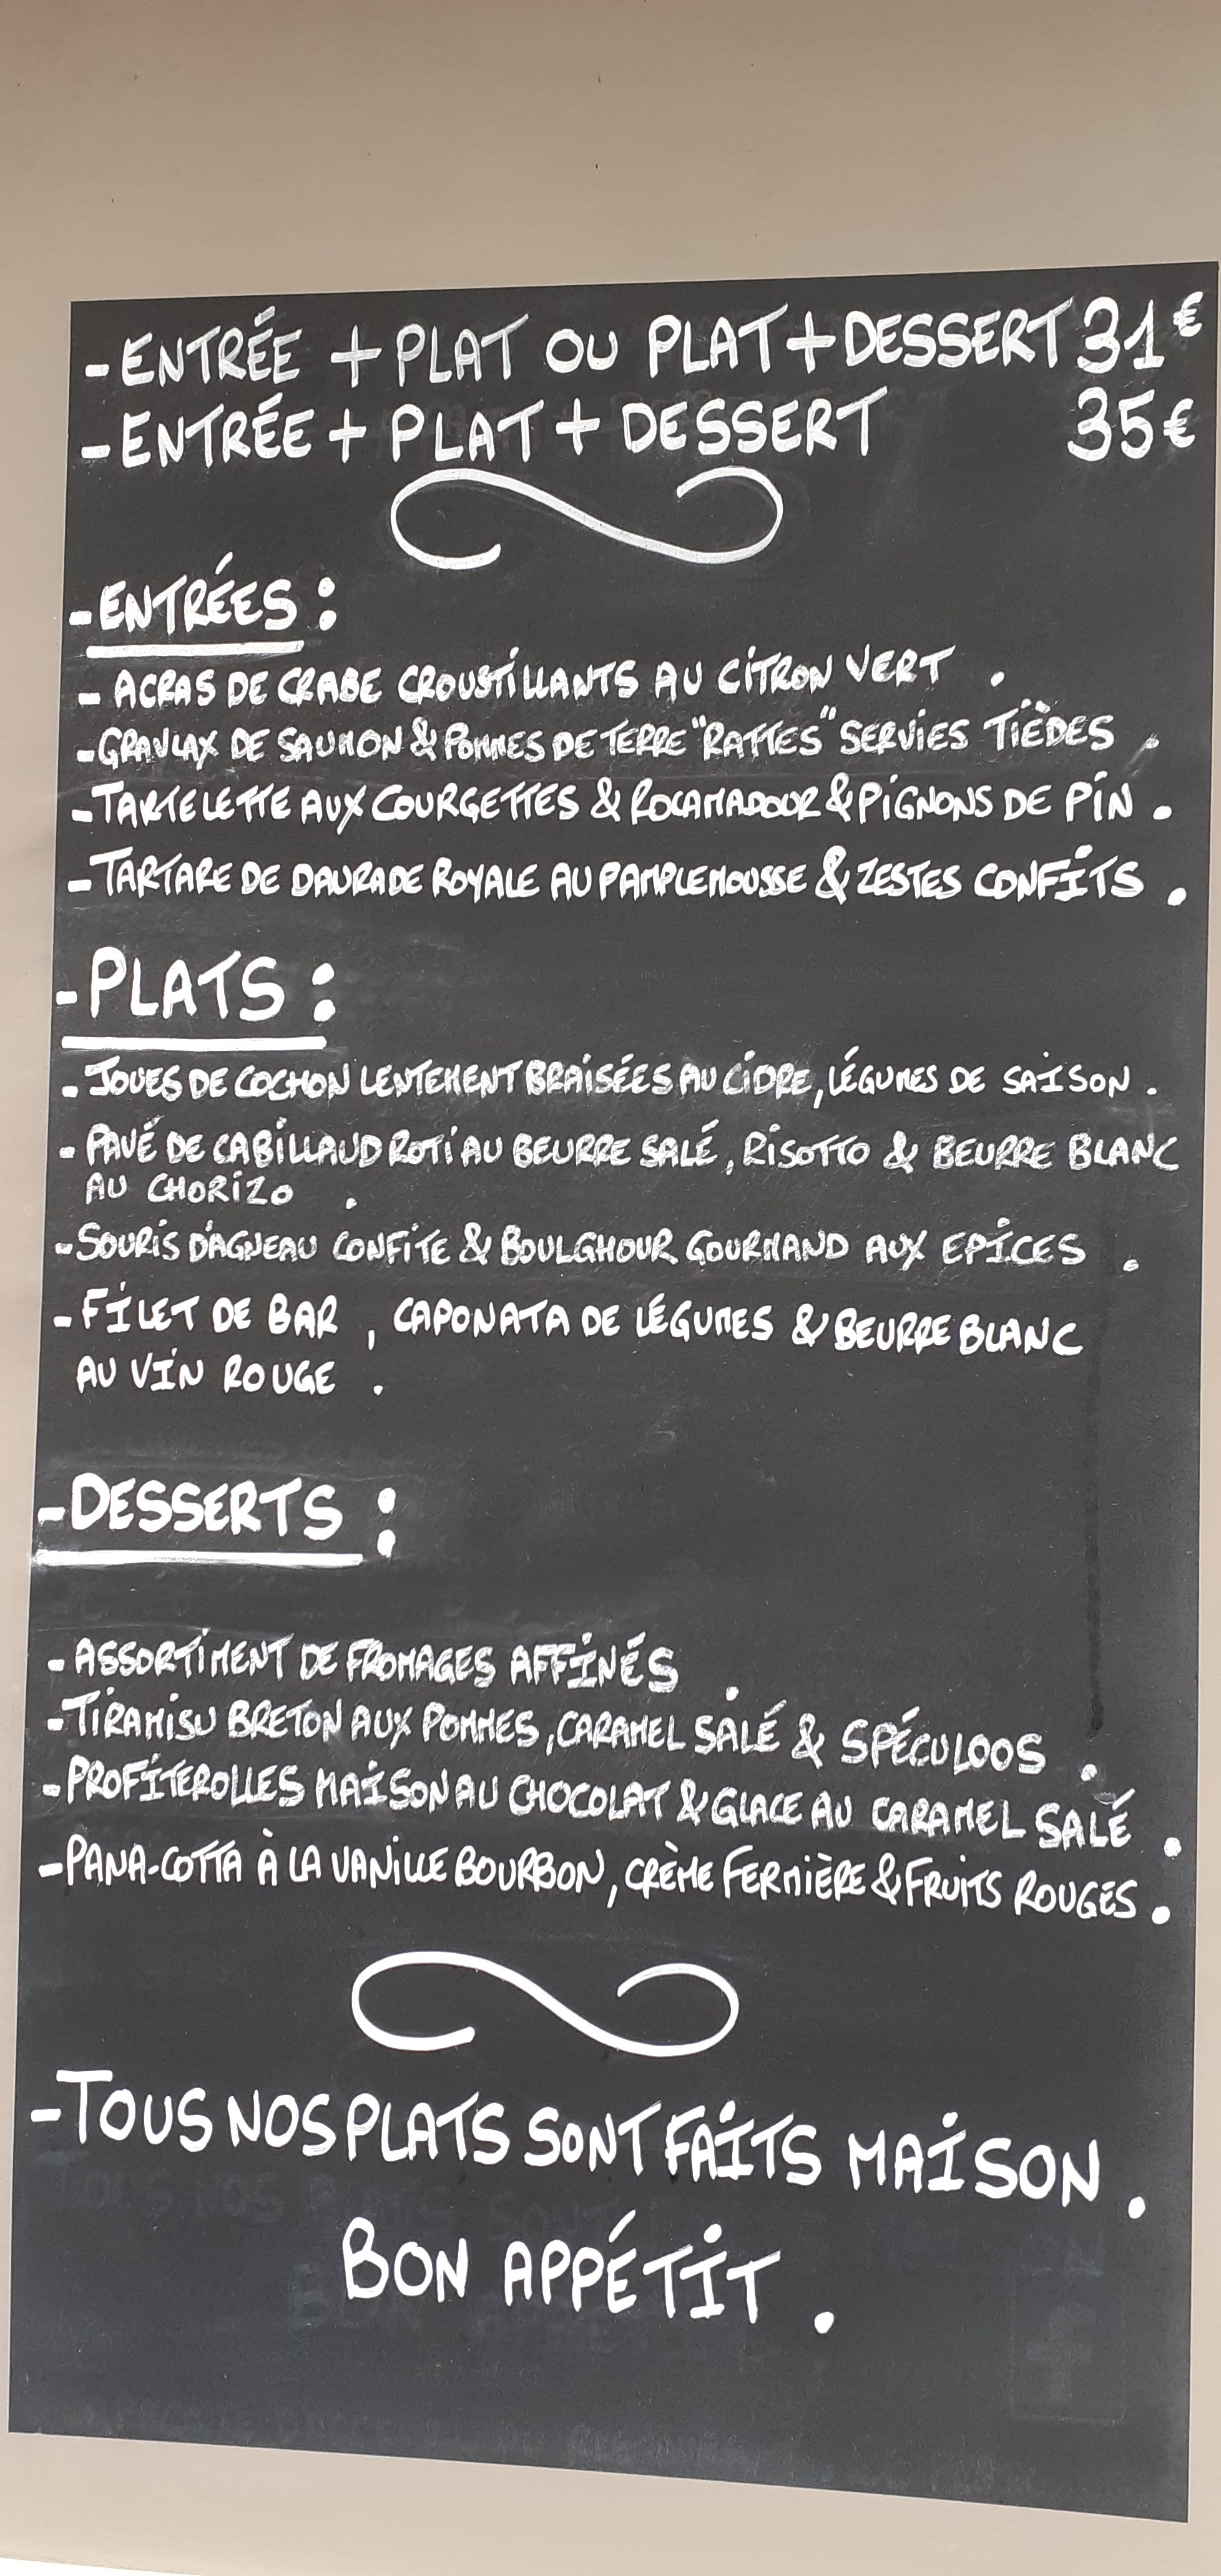 - ENTRÉE + PLAT OU PLAT + DESSERT 31€
- ENTRÉE + PLAT + DESSERT 35€
- ENTRÉES :
- ACRAS DE CRABE CROUSTILLANTS AU CITRON VERT .
- GRAVLAX DE SAUMON & POMMES DE TERRE "RATTES" SERVIES TIÈDES .
- TARTELETTE AUX COURGETTES & ROCAMADOUR & PIGNONS DE PIN .
- TARTARE DE DAURADE ROYALE AU PAMPLEMOUSSE & ZESTES CONFITS .
- PLATS :
- JOUES DE COCHON LENTEMENT BRAISÉES AU CIDRE, LÉGUMES DE SAISON .
- PAVÉ DE CABILLAUD ROTI AU BEURRE SALÉ, RISOTTO & BEURRE BLANC
AU CHORIZO .
- SOURIS D'AGNEAU CONFITE & BOULGHOUR GOURMAND AUX EPICES .
- FILET DE BAR , CAPONATA DE LÉGUMES & BEURRE BLANC
AU VIN ROUGE .
- DESSERTS :
- ASSORTIMENT DE FROMAGES AFFINÉS .
- TIRAMISU BRETON AUX POMMES, CARAMEL SALÉ & SPÉCULOOS .
- PROFITEROLLES MAISON AU CHOCOLAT & GLACE AU CARAMEL SALÉ .
- PANA-COTTA À LA VANILLE BOURBON, CRÈME FERMIÈRE & FRUITS ROUGES .
- TOUS NOS PLATS SONT FAITS MAISON .
BON APPÉTIT .